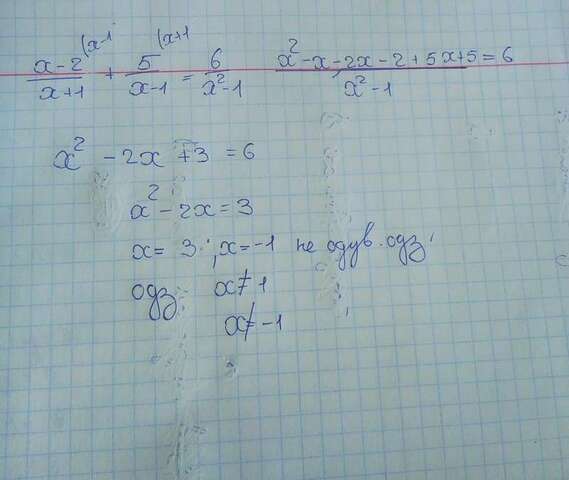 (x-1 (x+1
x-2/x+1 + 5/x-1 = 6/x²-1 x²-x-2x-2+5x+5=6/x²-1
x² -2x +3 = 6
x²-2x=3
x= 3 ; x=-1 не одув. одз
одз x≠1
x≠-1